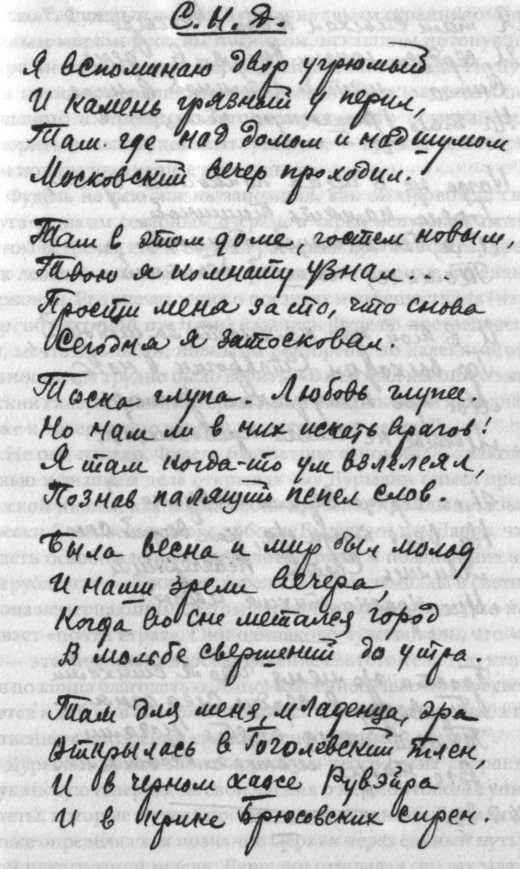 С. Н. Д.
Я вспоминаю двор угрюмый
И камень грязный у перил,
Там где над домом и над шумом
Московский вечер проходил.
Там в этом доме, гостем новым,
Твою я комнату узнал.
Прости меня за то, что снова
Сегодня я затосковал.
Тоска глупа. Любовь глупее.
Но нам ли в них искать врагов!
Я там когда-то ум взлелеял,
Познав палящий пепел слов.
Была весна и мир был молод
И наши зрели вечера,
Когда во сне метался город
В мольбе свершений до утра.
Там для меня, младенца, эра
Открылась в Гоголевский тлен,
И в черном хаосе Рувэйра
И в крике Брюсовских сирен.